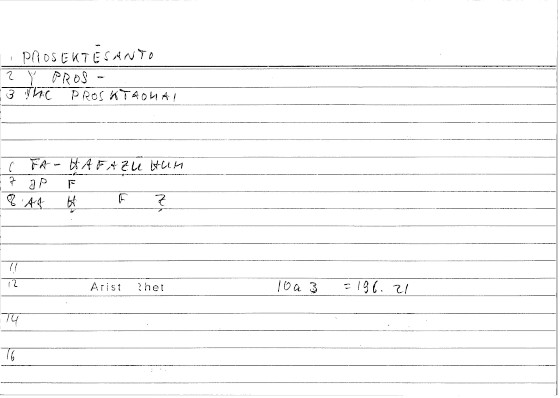 1 PROSEKTĒSANTO
2 Y PROS-
3 PROSKTAOMAI
6 FA-
7 ƏP F
8 AA Ḥ F Ẓ
11
12 Arist Rhet 10a 3 =196. 21
14
16